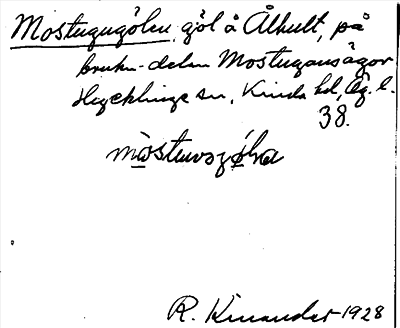 Mostugugölen, göl å Ålhult, på
bruku-delen Mostugans ägor.
Hycklinge sn, Kinda hd, Ög. l.
38.
R. Kinander 1928